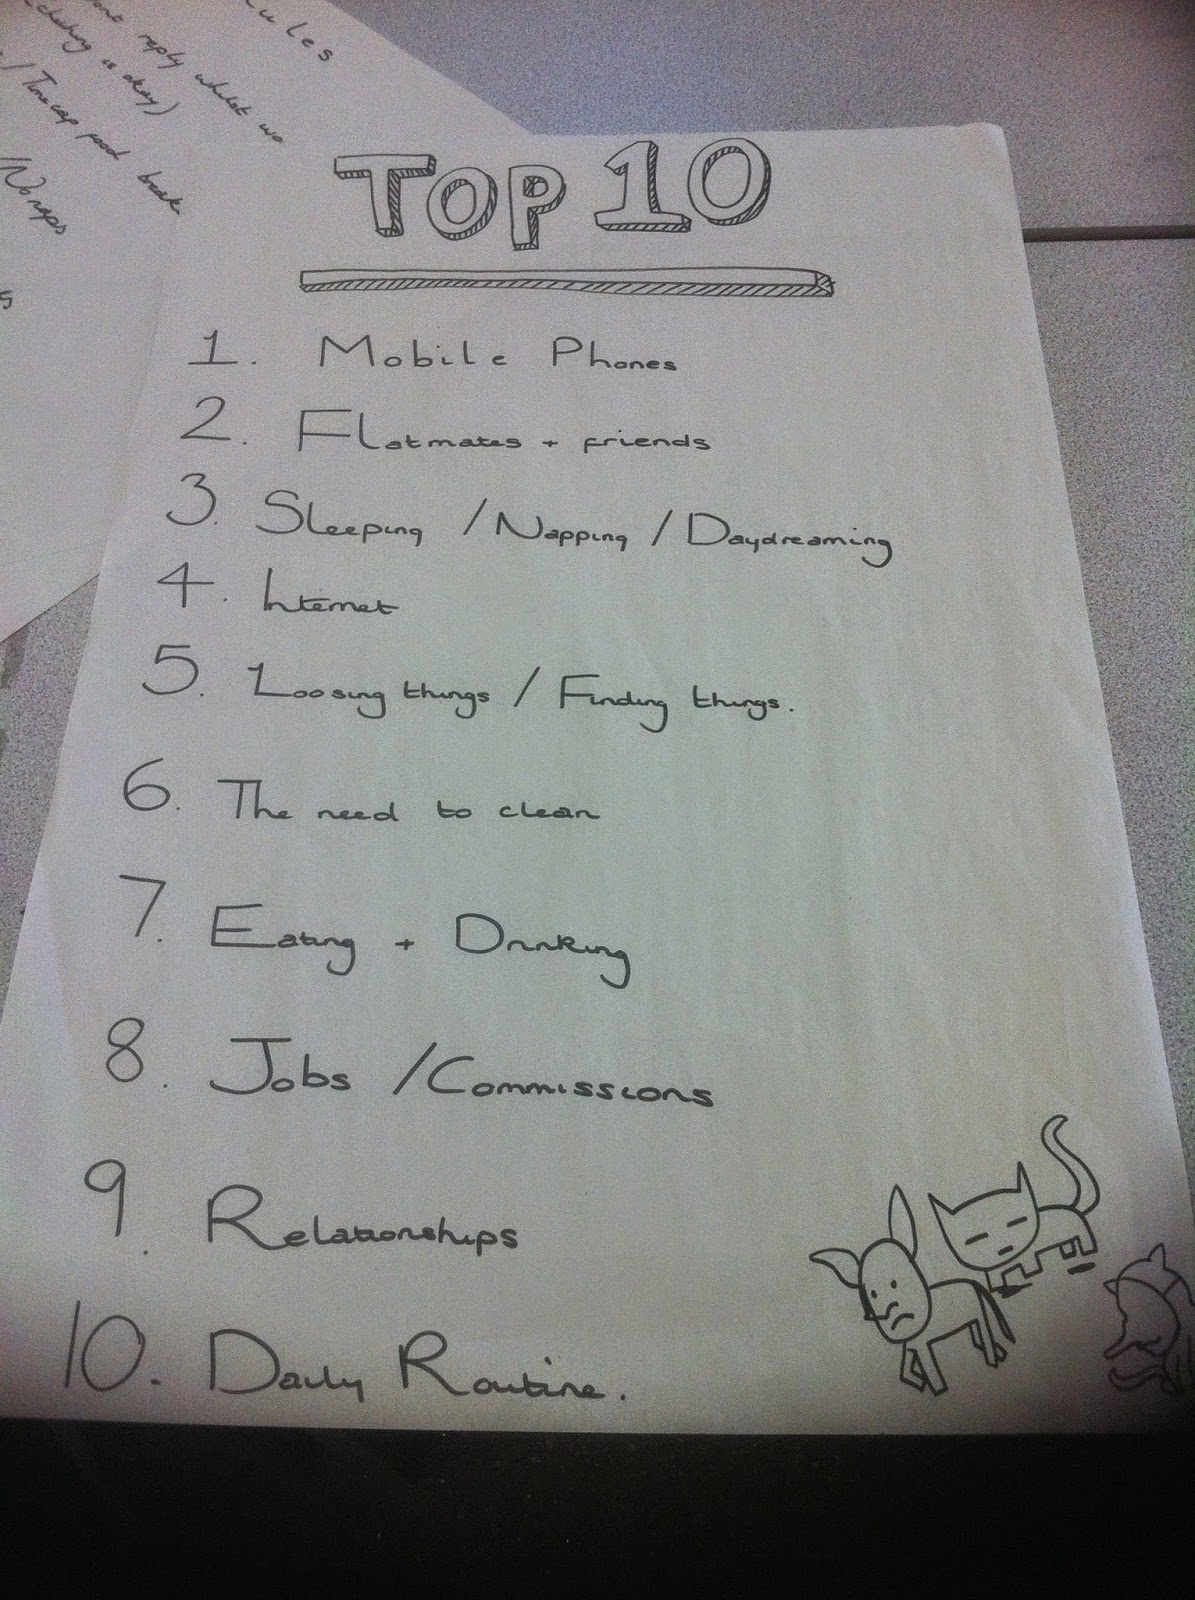 ules
reply whilst wo
is okay)
/ Timecap food break
/No naps
TOP 10
1. Mobile Phones
2. Flatmates + friends
3. Sleeping / Napping / Daydreaming
4. Internet
5. Loosing things / Finding things.
6. The need to clean
7. Eating + Drinking
8. Jobs / Commissions
9. Relationships
10. Daily Routine.